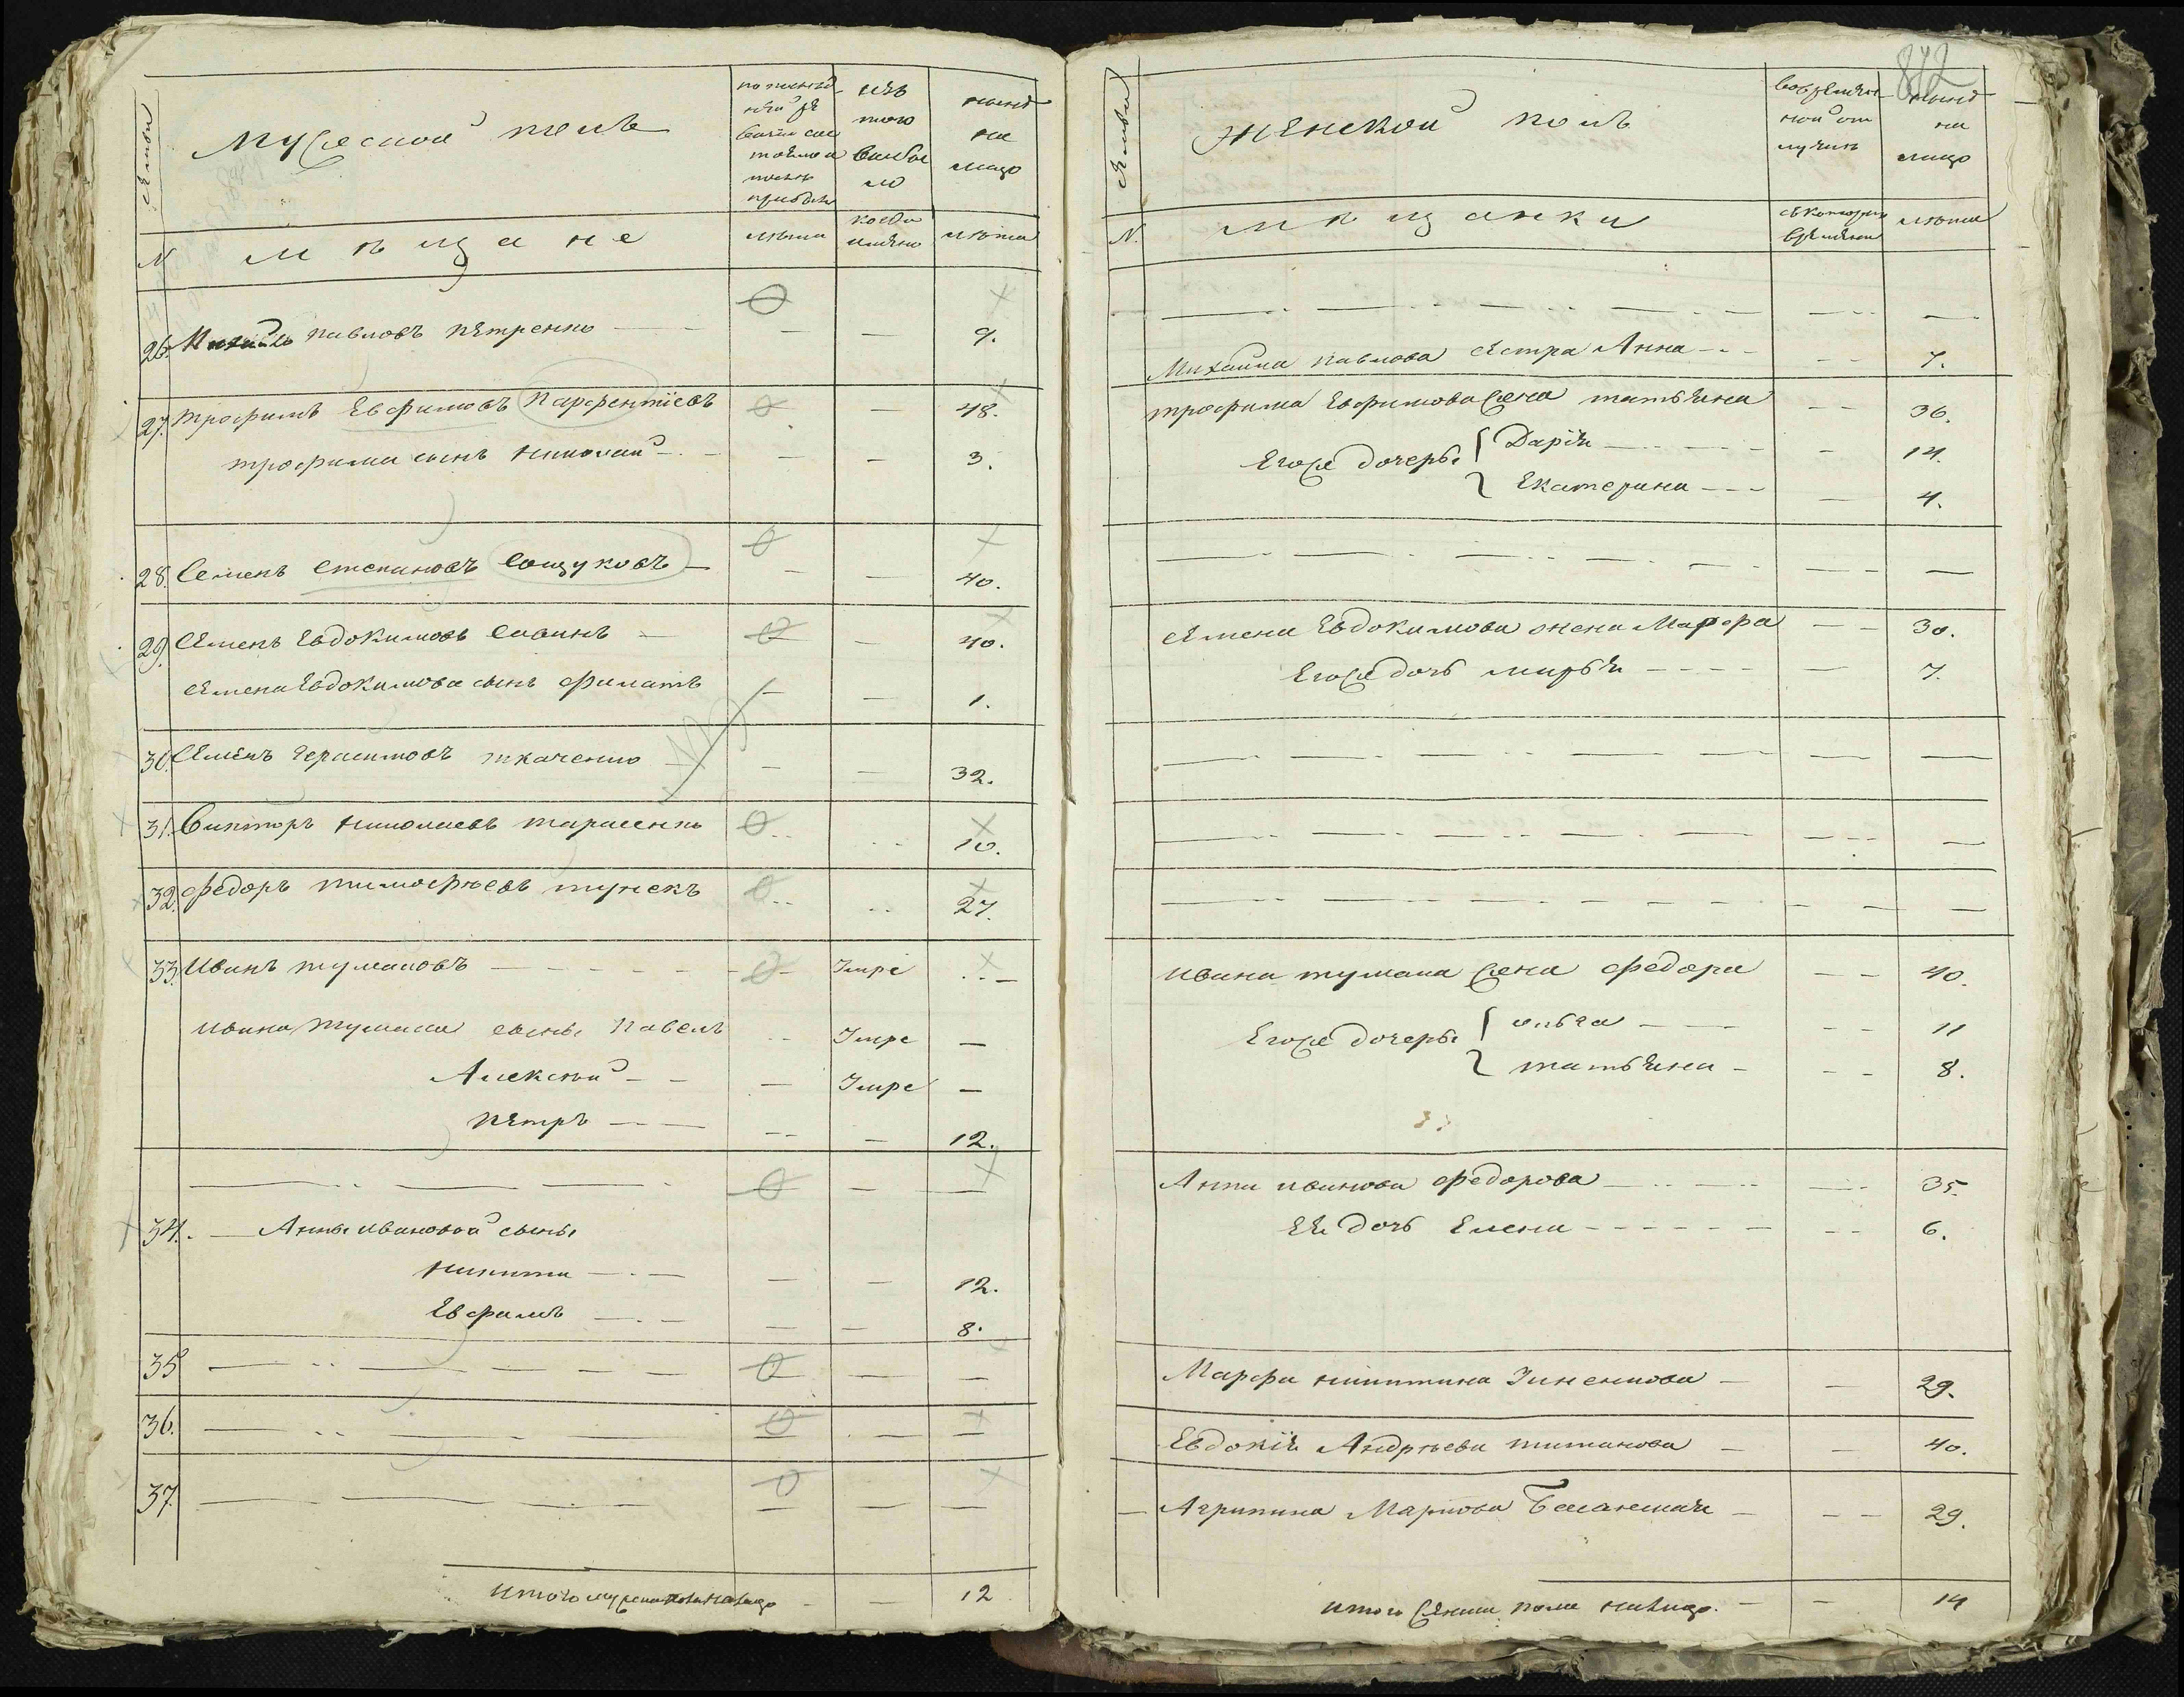 Семьи
Мужеской полъ
по послѣд
ней ре
визіи сос
тояло и
послѣ
прибыло
изъ
того
выбы
ло
нынѣ
на
лицо
N
мѣщане
лѣта
когда
именно
лѣта
26. Павловъ Петренко — — 9.
27. Трофимъ Евфимовъ Парфентіевъ — 48.
Трофима сынъ Николай — — 3.
28. Семенъ Степановъ Сощуковъ — — 40.
29. Семенъ Евдокимовъ Савинъ — 40.
Семена Евдокимова сынъ Филатъ — — 1.
30. Семенъ Герасимовъ Ткаченко — — 32.
31. Викторъ Николаевъ Тарасенко 10.
32. Федоръ Тимофѣевъ 27.
33. Иванъ Тумановъ — Умре
Ивана Тумана сынъ Павелъ Умре —
Алексѣй — Умре —
Петръ — — 12.
34. Анны Ивановой сыны
Никита — — 12.
Евфимъ — — 8.
35
36.
37.
Итого мужеска пола налицо — 12
872
Семьи
Женской полъ
во временной
отлучкѣ
нынѣ
на
лицо
N.
мѣщанки
съ котораго
времени
лѣта
Михайла Павлова сестра Анна — 7.
Трофима Евфимова жена Татьяна — 36.
Егоже дочери Дарія — 14.
Екатерина — 4.
Семена Евдокимова жена Марфа — 30.
Егоже дочь Марья — 7.
Ивана Тумана жена Федора — 40.
Егоже дочери Ольга — 11
Татьяна — 8.
Анна Иванова Федорова — 35.
Ея дочь Елена — 6.
Марфа Никитина — 29.
Евдокія Андрѣева Титанова — 40.
Агрипина Маркова — 29.
Итого женска пола налицо. — 14